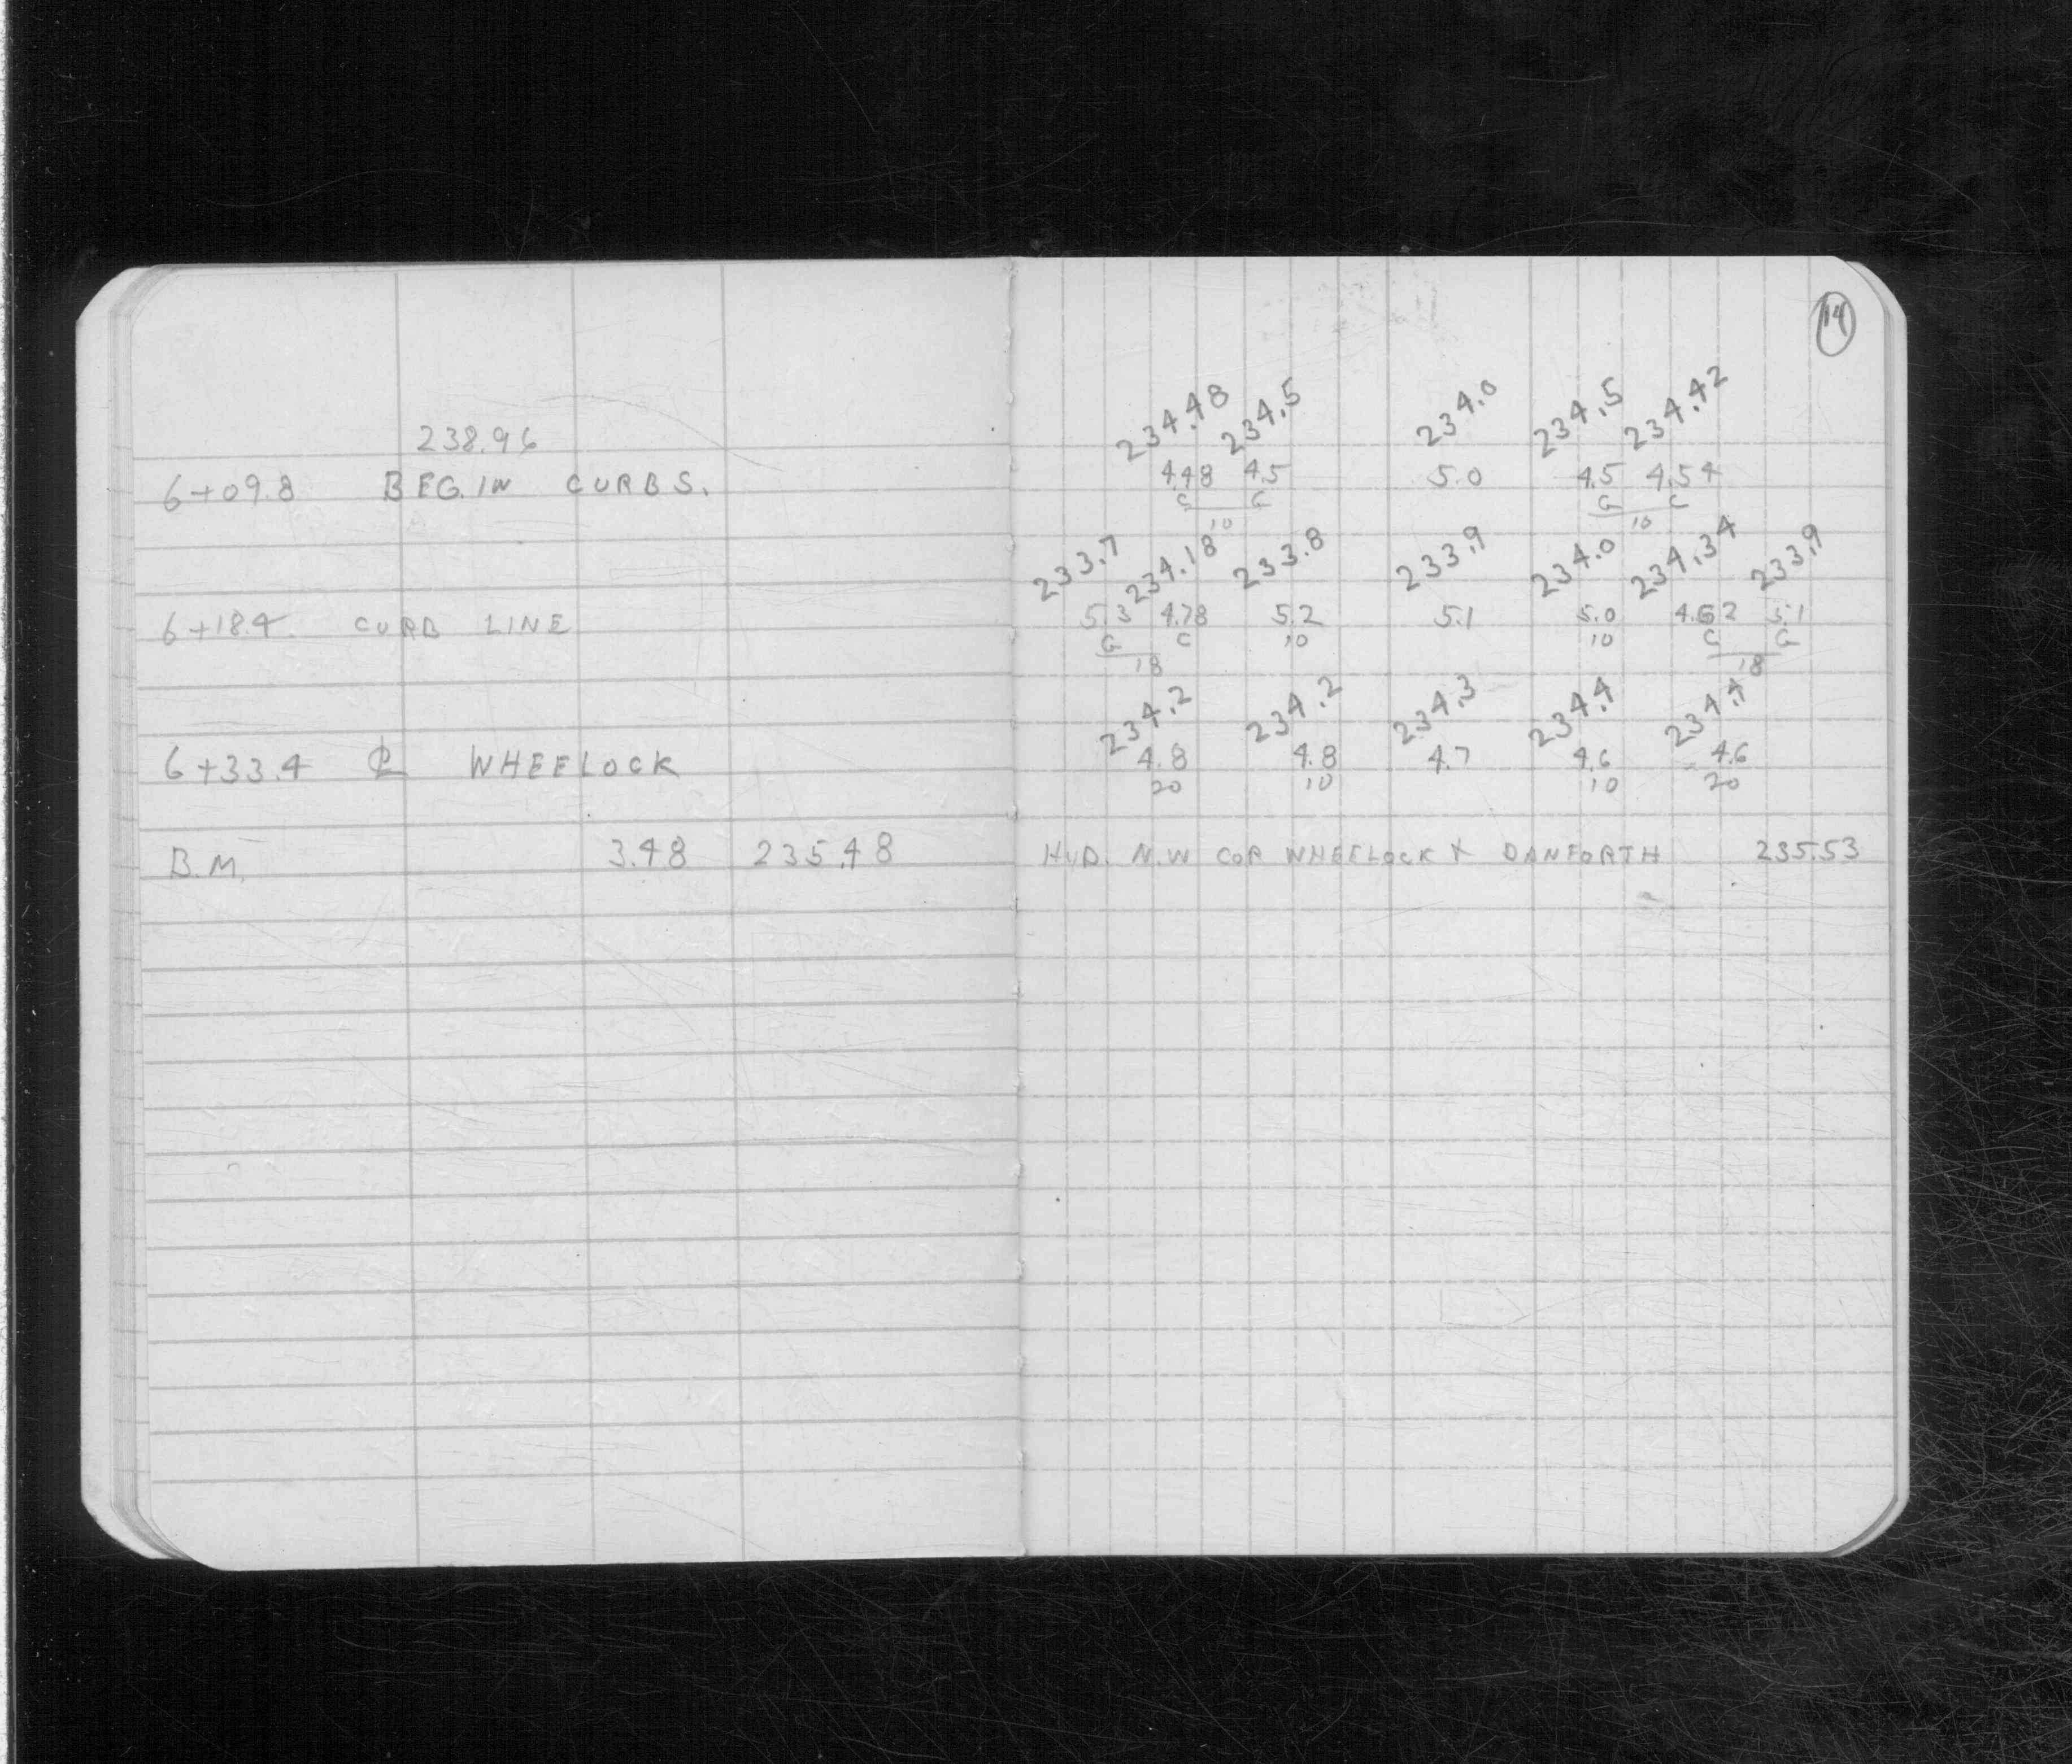 14
238.96
234.48 234.5 234.0 234.5 234.42
6+09.8 BEGIN CURBS. 4.48 4.5 5.0 4.5 4.54
C G G C
10 10
233.7 234.18 233.8 233.9 234.0 234.34 233.9
6+18.4 CURB LINE 5.3 4.78 5.2 5.1 5.0 4.62 5.1
G C 10 10 C G
18 18
234.2 234.2 234.3 234.4 234.4
6+33.4 ℄ WHEELOCK 4.8 4.8 4.7 4.6 4.6
20 10 10 20
B.M. 3.48 235.48 HYD. N.W COR WHEELOCK & DANFORTH 235.53